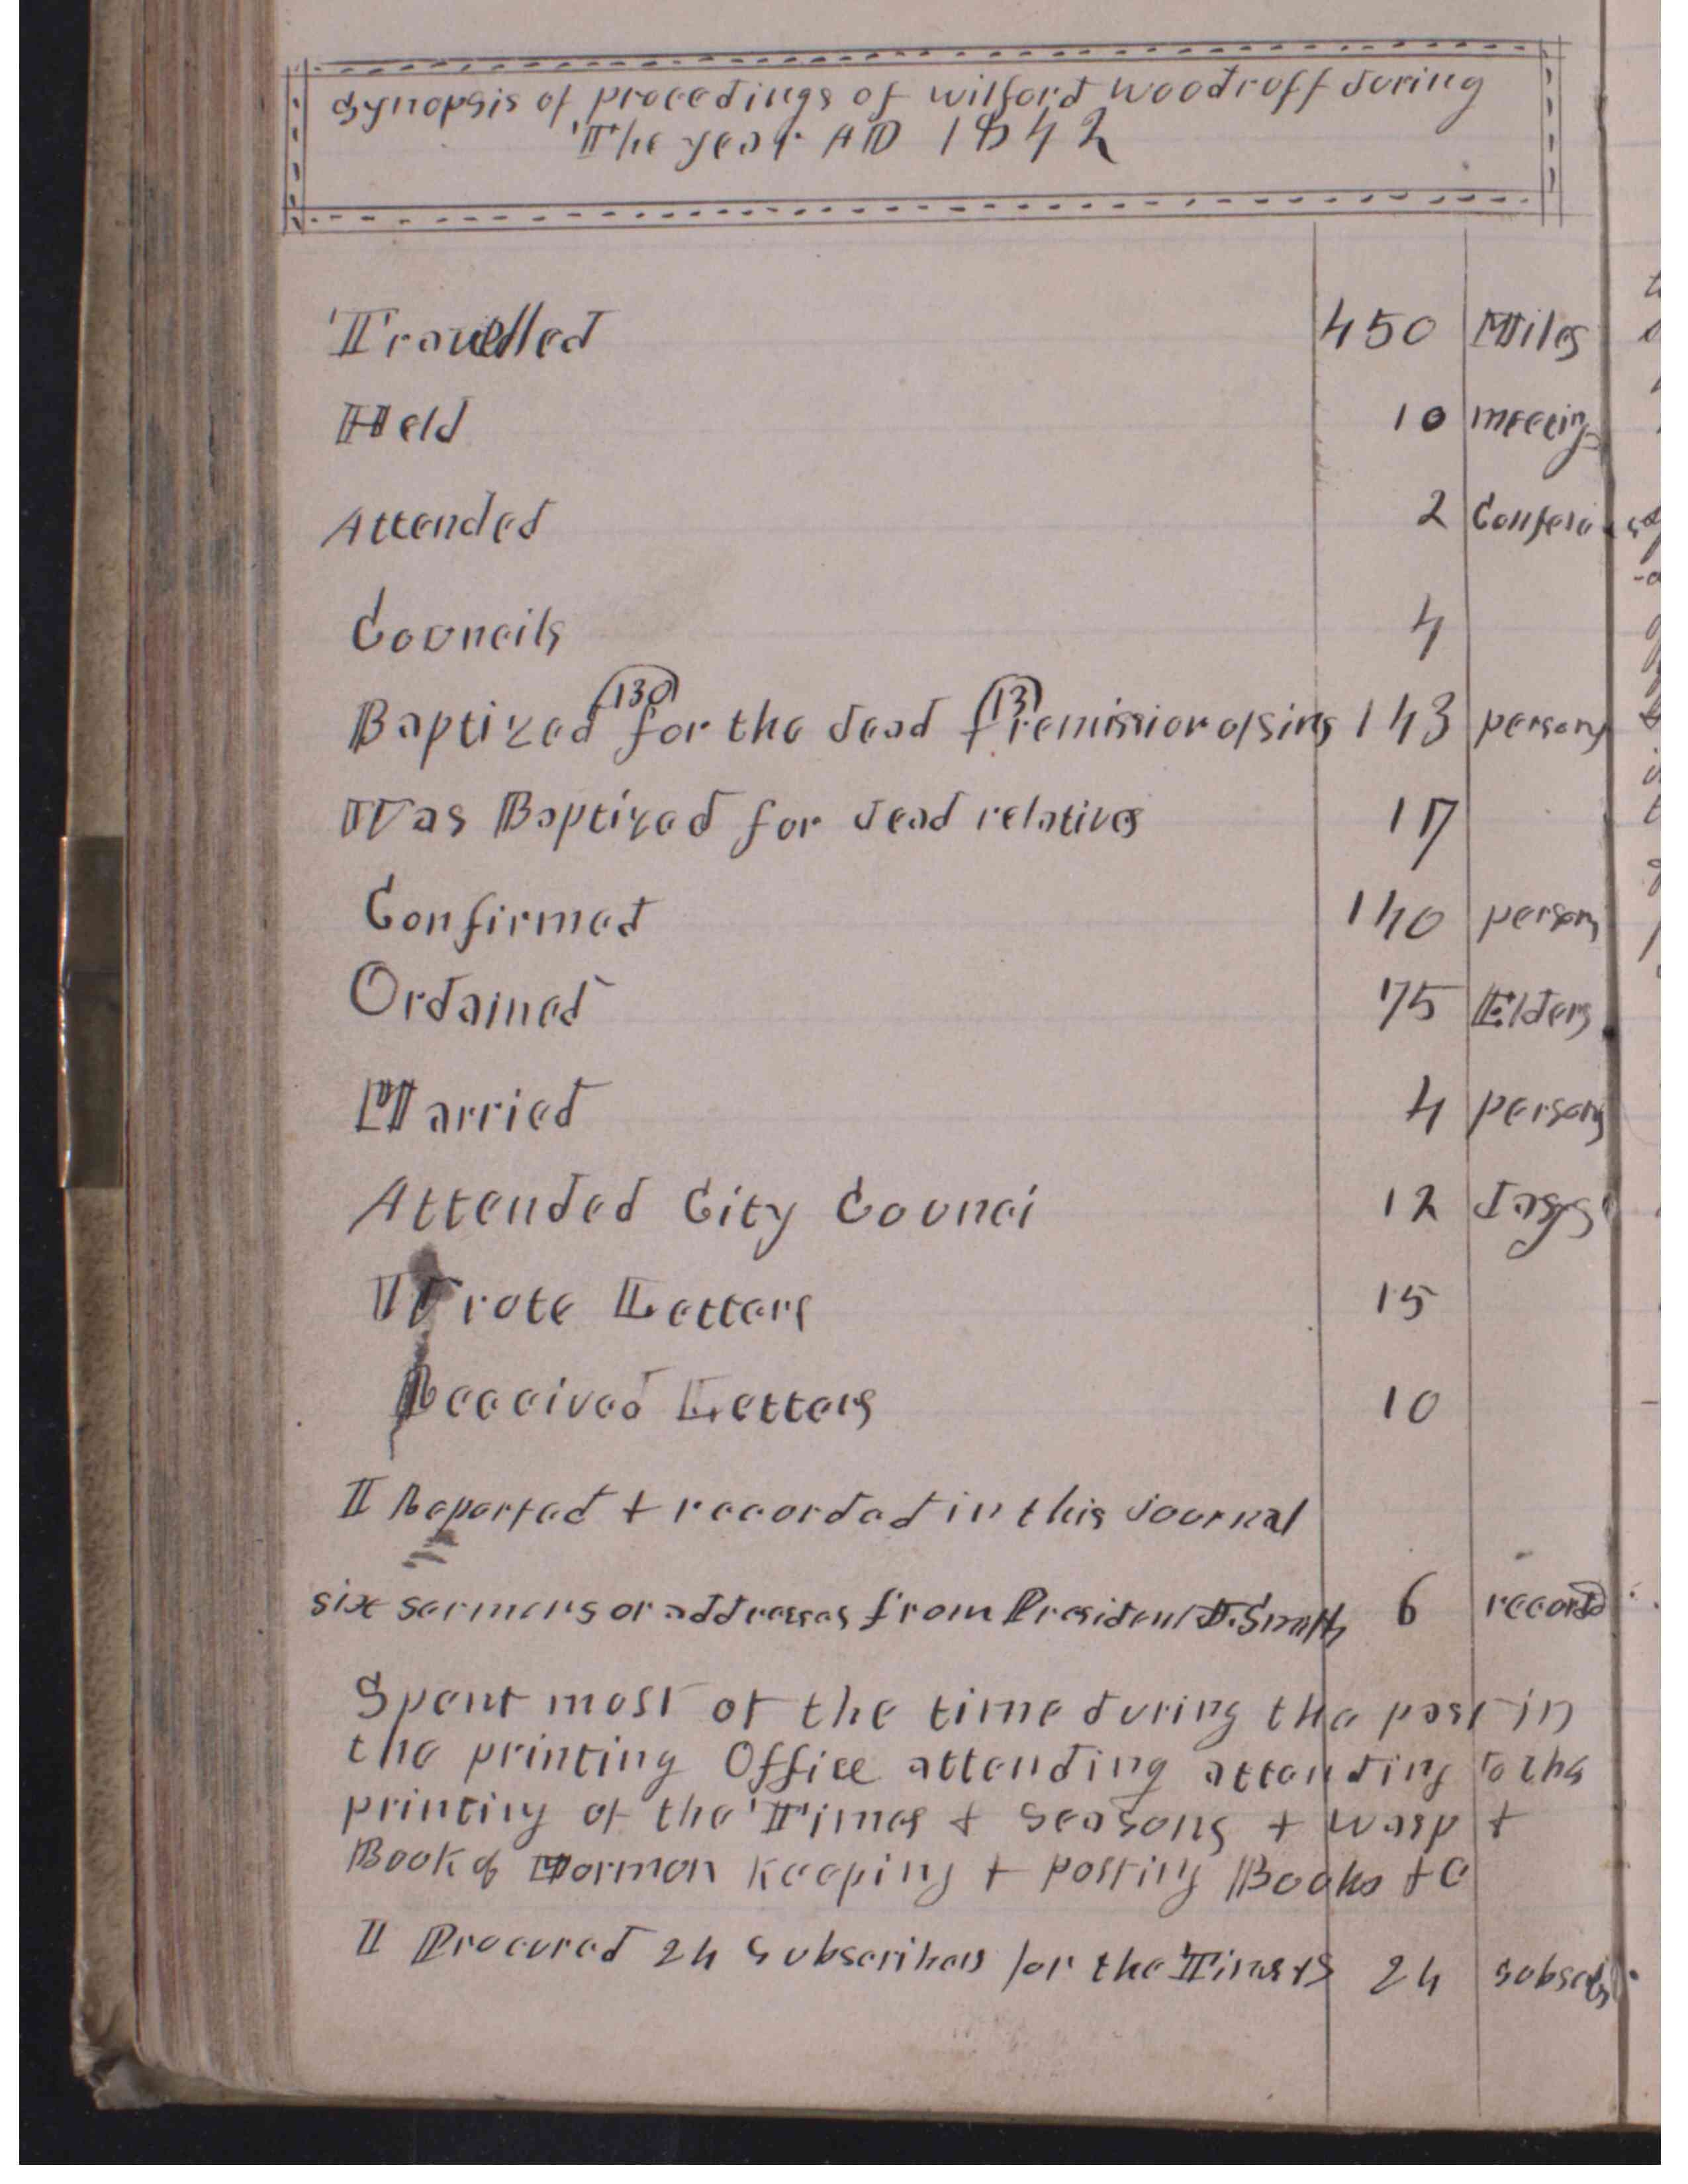 Synopsis of procedings of wilford woodruff during
The year AD 1842
Travelled 450 Miles
Held 10 meeting
Attended 2
Councils 4
(130) (13)
Baptized for the dead f remission of sins 143 persons
Was Baptized for dead relatives 17
Confirmed 140 persons
Ordained 75 Elders
Married 4 persons
Attended City Counci 12 days
Wrote Letters 15
Received Letters 10
I Reported + recorded in this Journal
six sermons or addresses from President J. Smith 6 record
Spent most of the time during the past in
the printing Office attending attending to the
printing of the Times + Seasons + wasp +
Book of Mormon Keeping + posting Books + C
I Procured 24 Subscribers for the Times + S 24